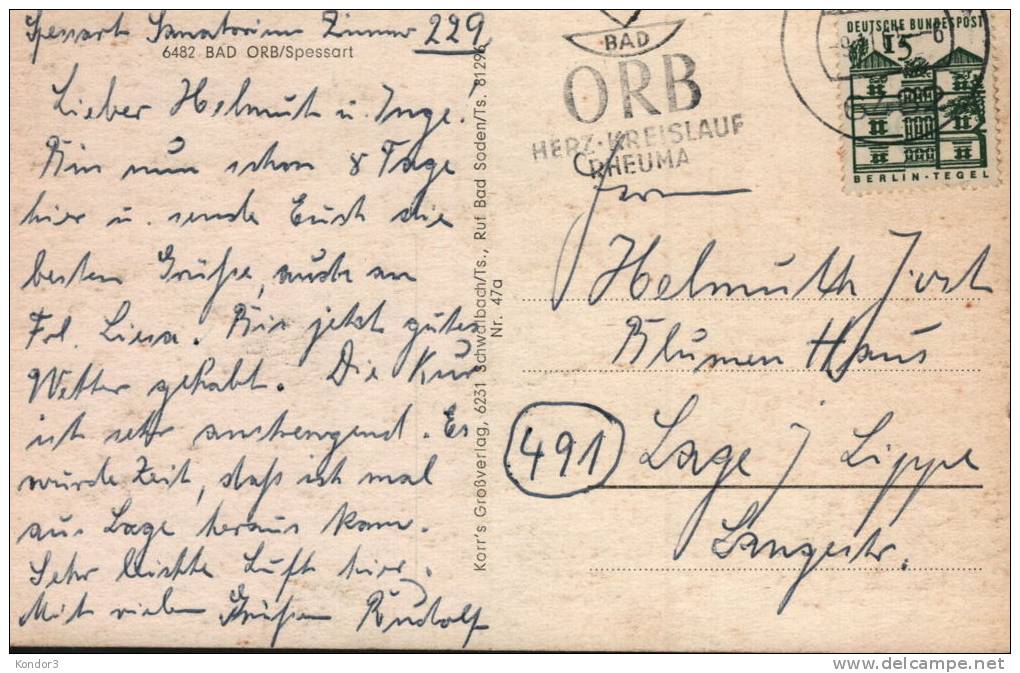 Spessart Sanatorium Zimmer 229
6482 BAD ORB/Spessart
Lieber Helmuth u. Inge!
Bin nun schon 8 Tage
hier u. sende Euch die
besten Grüße, auch an
Frl. Liesa. Bis jetzt gutes
Wetter gehabt. Die Kur
ist sehr anstrengend. Es
wurde Zeit, daß ich mal
aus Lage heraus kam.
Sehr leichte Luft hier.
Mit vielen Grüßen Rudolf
Korr's Großverlag, 6231 Schwalbach/Ts., Ruf Bad Soden/Ts. 81296
Nr. 47a
BAD
ORB
HERZ·KREISLAUF
RHEUMA
DEUTSCHE BUNDESPOST
15
BERLIN-TEGEL
Herrn
Helmuth Jost
Blumen Haus
491 Lage / Lippe
Langestr.
Kondor3
http://www.delcampe.net